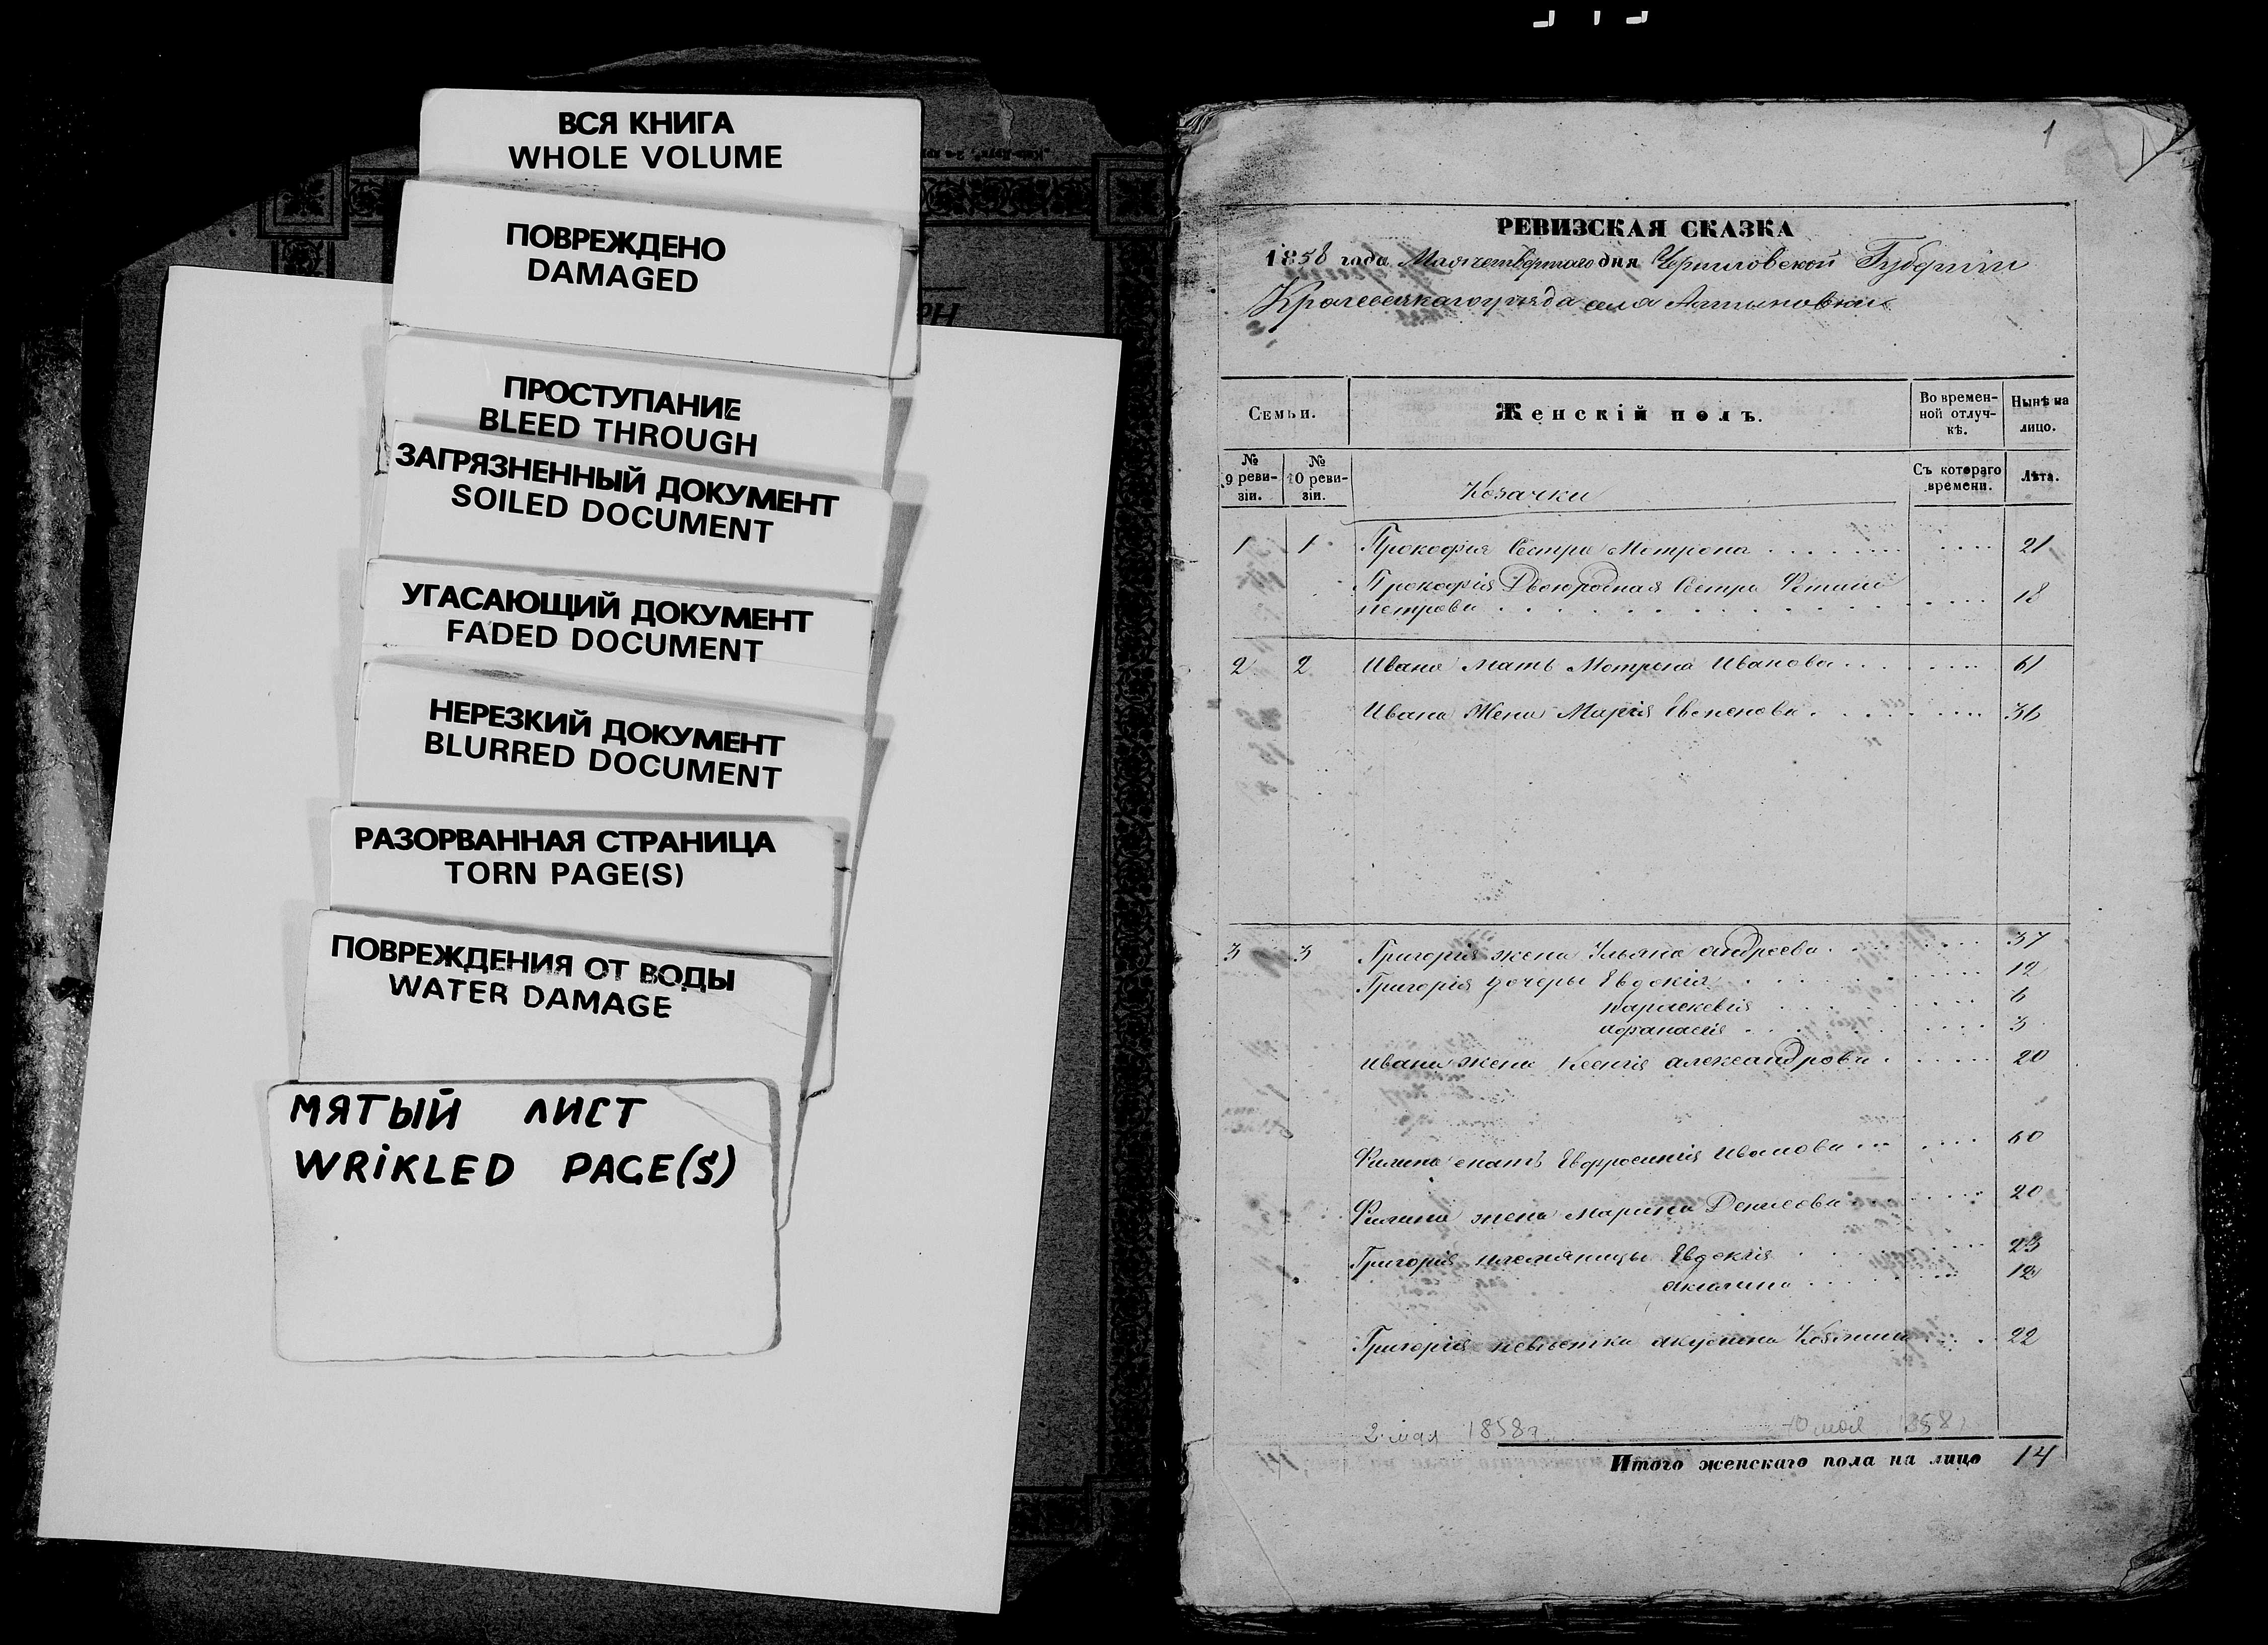 ВСЯ КНИГА
WHOLE VOLUME
ПОВРЕЖДЕНО
DAMAGED
ПРОСТУПАНИЕ
BLEED THROUGH
ЗАГРЯЗНЕННЫЙ ДОКУМЕНТ
SOILED DOCUMENT
УГАСАЮЩИЙ ДОКУМЕНТ
FADED DOCUMENT
НЕРЕЗКИЙ ДОКУМЕНТ
BLURRED DOCUMENT
РАЗОРВАННАЯ СТРАНИЦА
TORN PAGE(S)
ПОВРЕЖДЕНИЯ ОТ ВОДЫ
WATER DAMAGE
МЯТЫЙ ЛИСТ
WRiKLED PAGE(S)
1
РЕВИЗСКАЯ СКАЗКА
1858 года Мая четвертаго дня Черниловской Губернии
Кролевецкаго уѣзда села Алтыновки
Семьи.
Женскій полъ.
Во времен-
ной отлуч-
кѣ.
Нынѣ на
лицо.
№
9 реви-
зіи.
№
10 реви-
зіи.
Козачки
Съ котораго
времени.
Лѣта.
1 1 Прокофия Сестра Мотрона 21
Прокофія Двоюродная Сестра
петрова 18
2 2 Ивана Мать Мотрона Иванова 61
Ивана Жена Марія 36
3 3 Григорія жена Ульяна андреева 37
Григорія дочеры Евдокія 12
параскевія 6
афанасія 3
Ивана жена Ксенія александрова 20
Филипа мать Евфросинія Иванова 60
Филипа жена Марина Денисова 20
Григорія племяницы Евдокія 23
акилина 12
Григорія невѣстка акулина 22
2 мая 1858г. 10 мая 1858г
Итого женскаго пола на лицо 14